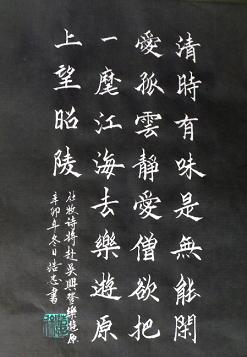 清時有味是無能閑
愛孤雲靜愛僧欲把
一麾江海去樂遊原
上望昭陵
杜牧诗将赴吴興登樂遊原
辛卯年冬日培志書